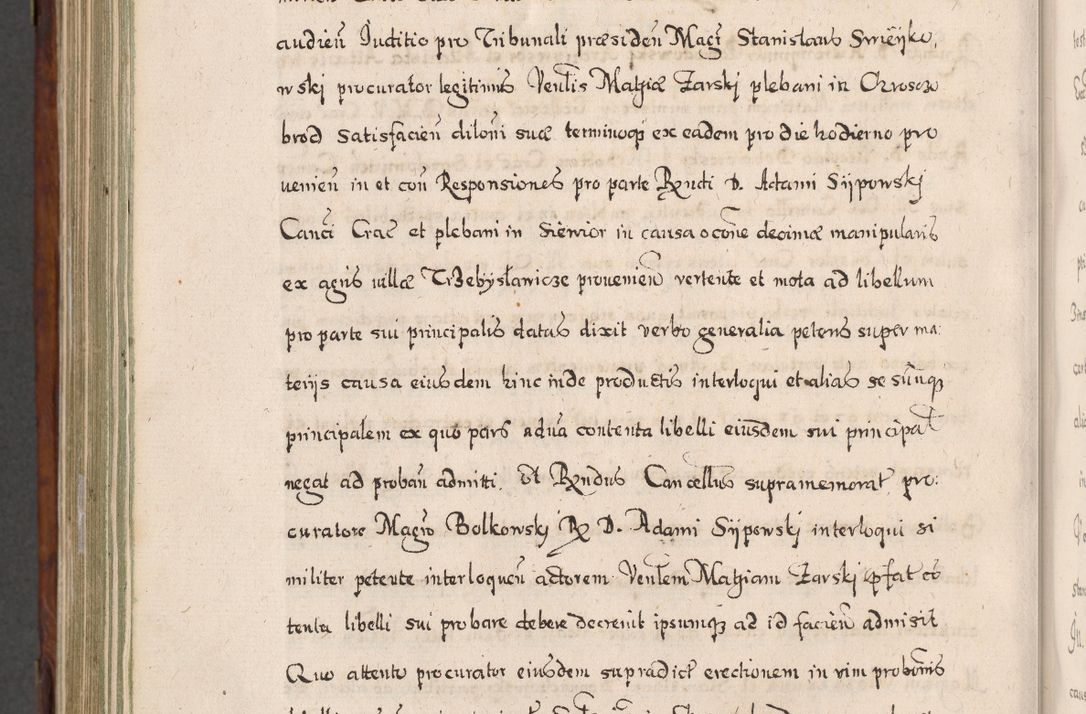 audień Juditio pro Tribunali præsideń Magr̃ Stanislaus Smieyko,
wski procurator legitimus Venłis Mathiæ Zarskj plebani in Czwosczo
brod satisfacień diloñi suæ terminoqз ex eadem pro die hodierno pro
venień in et coñ Responsiones pro parte Rɲdi D. Adami Siipowskj
Canci Crac et plebani in Siewior in causa occone decimæ manipularis
ex agris villæ Trzebyslawicze provenień vertente et mota ad libellum
pro parte sui principalis datas dixit verbo generalia petens super ma:
terijs causa eiusdem hinc inde productis interloqui et alias se suũmqз
principalem ex quo pars adũa contenta libelli eiusdem sui principał
negat ad probañ admitti. Et Rɲndus Cancellus supramemorat pro:
curatore Magr̃o Bolkowskj R D. Adami Siipowskj interloqui si
militer petente interloqueñ actorem Venłem Mathiam Zarskj pfat cõ
tenta libelli sui probare debere decrevit ipsumqз ad id facień admisit
Quo attento procurator eiusdem supradict erectionem in vim probonis